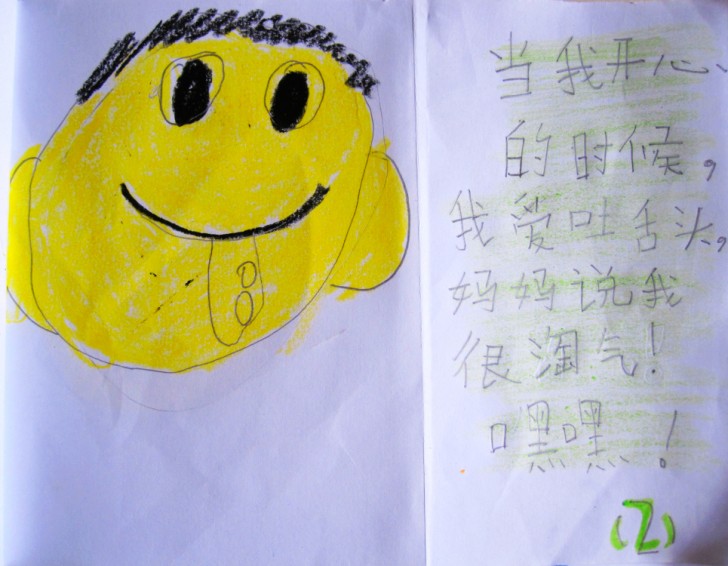 当我开心
的时候，
我爱吐舌头，
妈妈说我
很淘气！
嘿嘿！
(2)